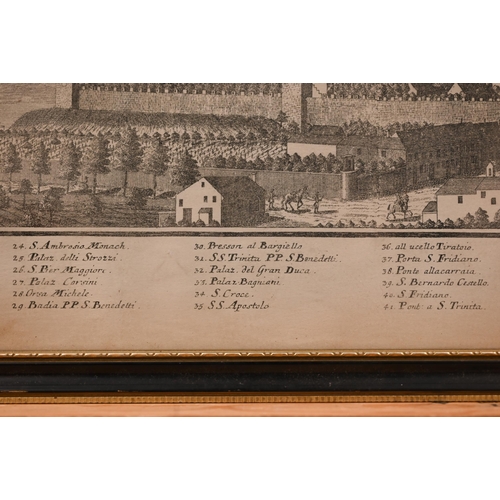 24. S. Ambrosio Monach.
25. Palaz. delli Strozzi.
26. S. Pier Maggiori.
27. Palaz Corsini
28. Orsa Michele.
29. Badia P.P. S. Benedetti
30. Presson al Bargiello
31. S.S. Trinita P.P. S. Benedetti.
32. Palaz. del Gran Duca.
33. Palaz. Bagnani.
34. S. Croce.
35. S.S. Apostolo
36. all ucello Tiratoio.
37. Porta S. Fridiano.
38. Ponte allacarraia
39. S. Bernardo Cestello.
40. S. Fridiano.
41. Pont: a S. Trinita.